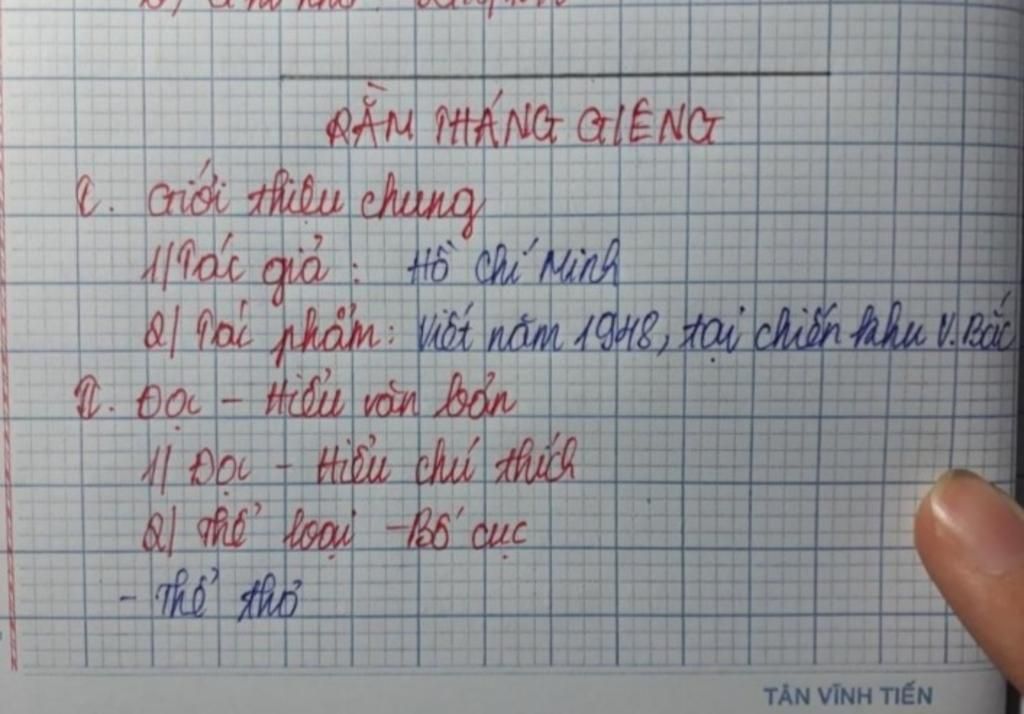 RẰM THÁNG GIÊNG
I. Giới thiệu chung
1/ Tác giả : Hồ Chí Minh
2/ Tác phẩm : Viết năm 1948, tại chiến khu V.Bắc
II. Đọc - Hiểu văn bản
1/ Đọc - Hiểu chú thích
2/ Thể loại - Bố cục
- Thể thơ
TÂN VĨNH TIẾN